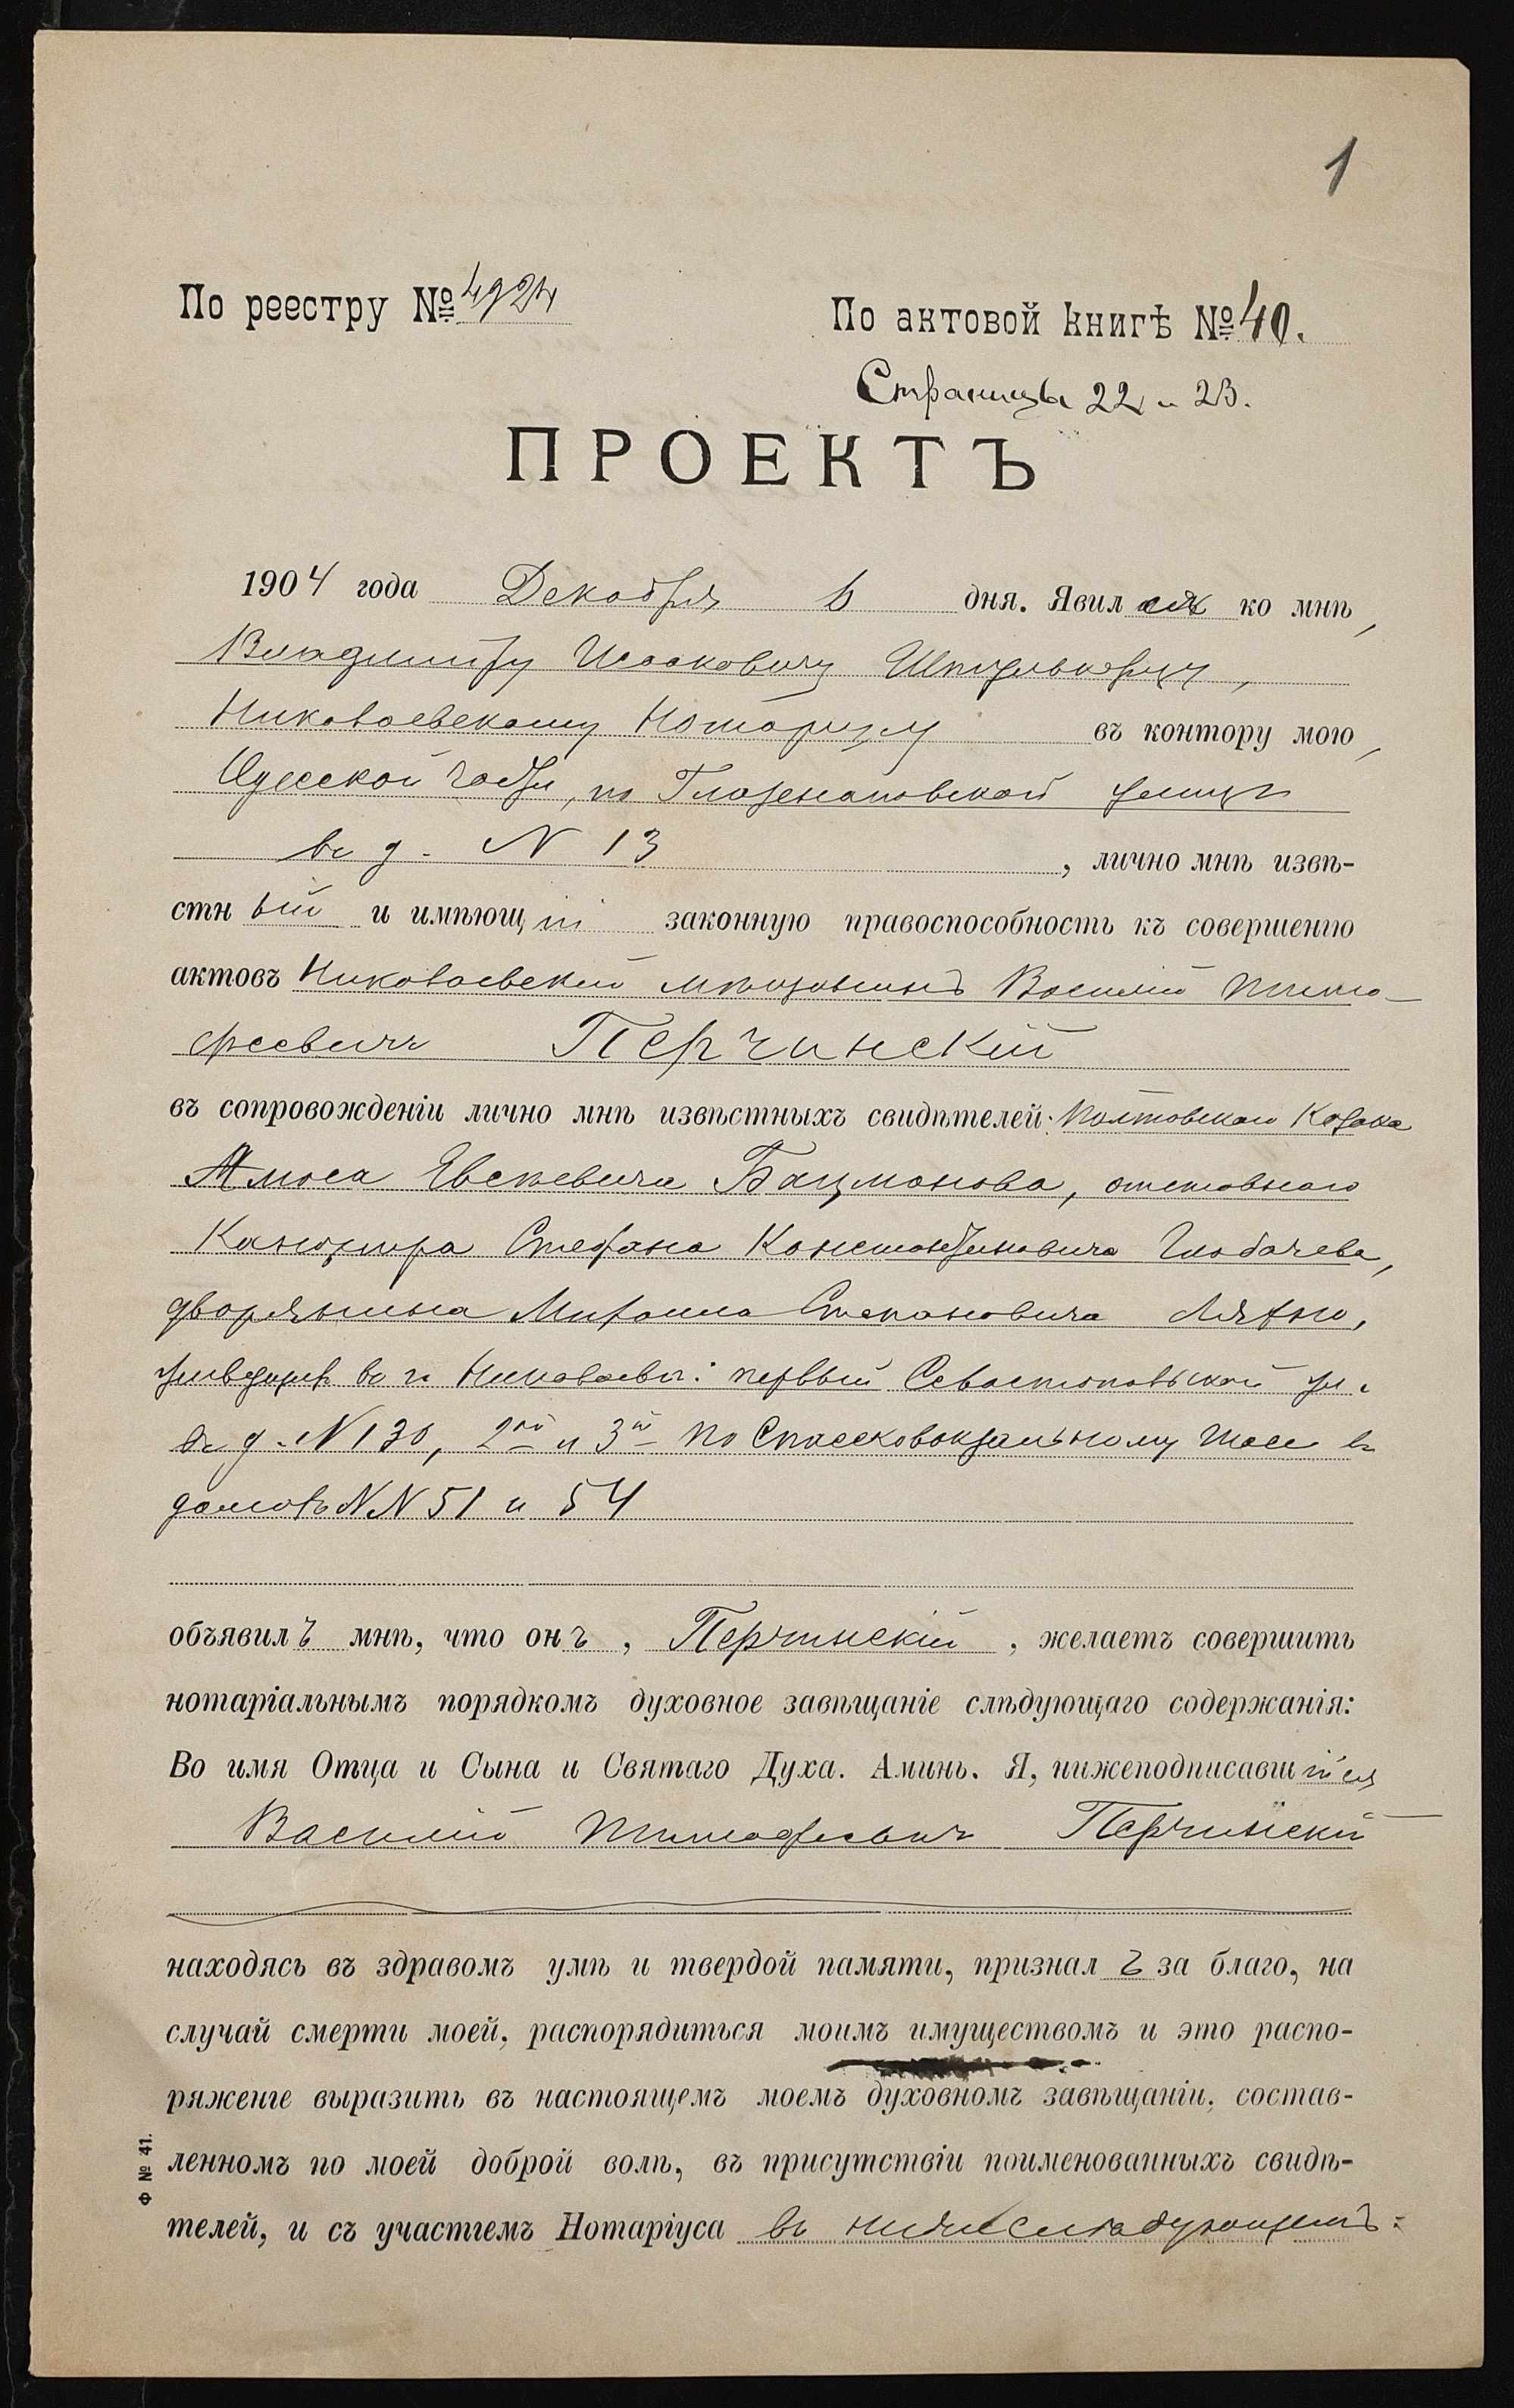 1
По реестру № 4924
По актовой книгѣ № 40.
Страницы 22 и 23.
ПРОЕКТЪ
1904 года Декабря 6 дня. Явился ко мнѣ,
Владиміру Исааковичу
Николаевскому Нотаріусу въ контору мою,
Одесской части, по Глазенаповской улицѣ
въ д. N 13, лично мнѣ извѣ-
стный и имѣющій законную правоспособность къ совершенію
актовъ Николаевскій мѣщанинъ Василій Тимо-
феевичъ Перчинскій
въ сопровожденіи лично мнѣ извѣстныхъ свидѣтелей: Полтавскаго Козака
Амоса Евсеевича Бацманова, отставного
Канонира Стефана Константиновича Глобачева,
дворянина Михаила Степановича
живущихъ въ г. Николаевѣ: первый Севастопольской ул.
въ д. N 130, 2ой и 3й по Спасскокзальному шоссе въ
домахъ NN 51 и 54
объявилъ мнѣ, что онъ, Перчинскій, желаетъ совершить
нотаріальнымъ порядкомъ духовное завѣщаніе слѣдующаго содержанія:
Во имя Отца и Сына и Святаго Духа. Аминь. Я, нижеподписавшійся
Василій Тимофеевичъ Перчинскій
находясь въ здравомъ умѣ и твердой памяти, призналъ за благо, на
случай смерти моей, распорядиться моимъ имуществомъ и это распо-
ряженіе выразить въ настоящемъ моемъ духовномъ завѣщаніи, состав-
ленномъ по моей доброй волѣ, въ присутствіи поименованныхъ свидѣ-
телей, и съ участіемъ Нотаріуса въ нижеслѣдующемъ:
Ф № 41.